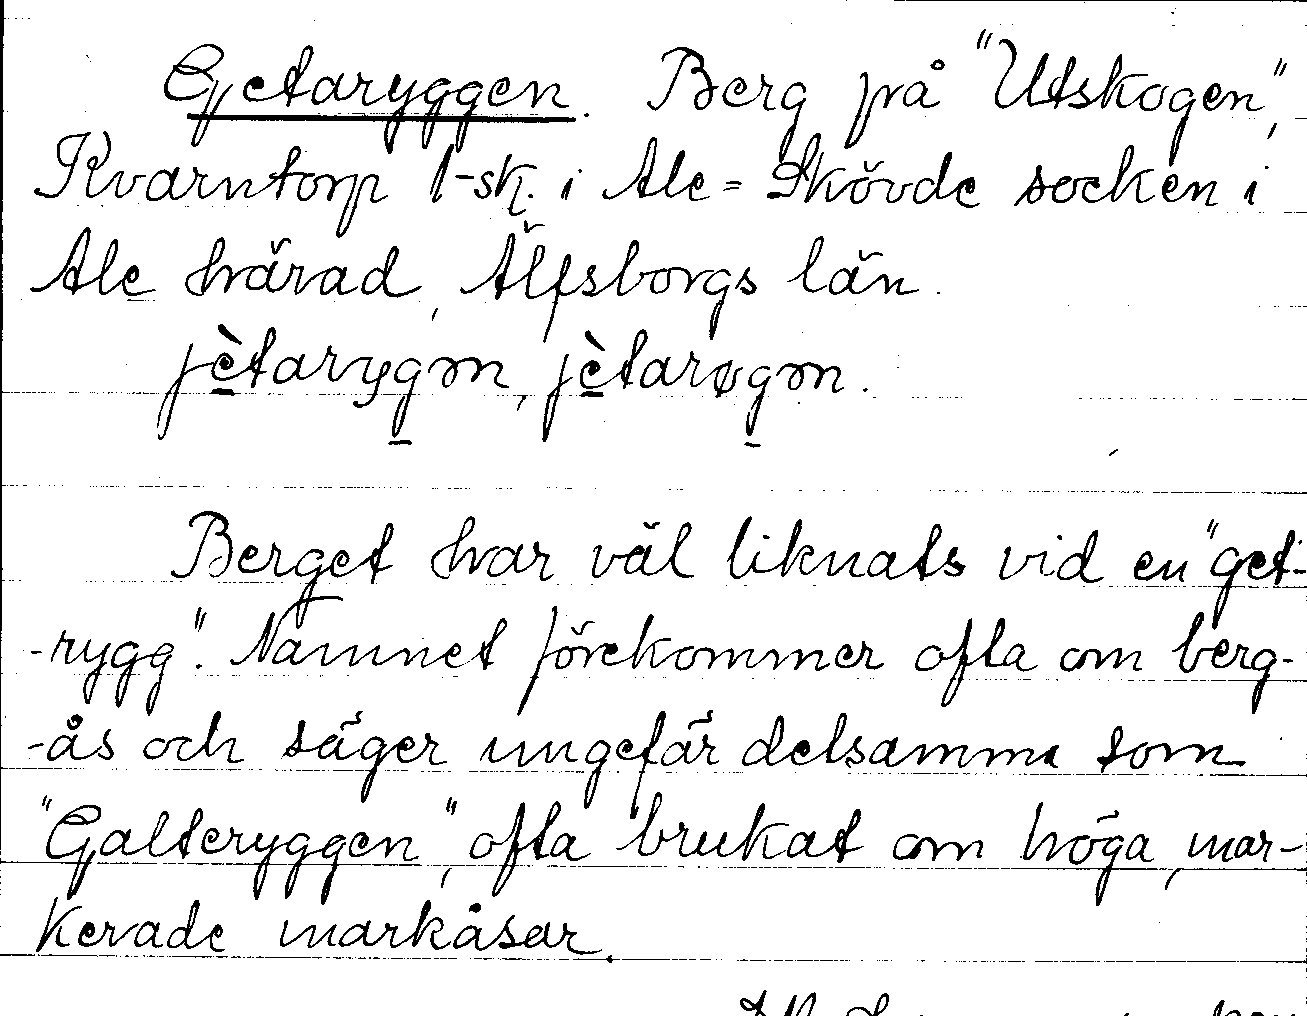 Getaryggen. Berg på "Utskogen",
Kvarntorp 1-sk. i Ale-Skövde socken i
Ale härad, Älfsborgs län.
jètarygən, jètarøgən.
Berget har väl liknats vid en "get-
-rygg". Namnet förekommer ofta om berg-
-ås och säger ungefär detsamma som
"Galteryggen", ofta brukat om höga, mar-
kerade markåsar.